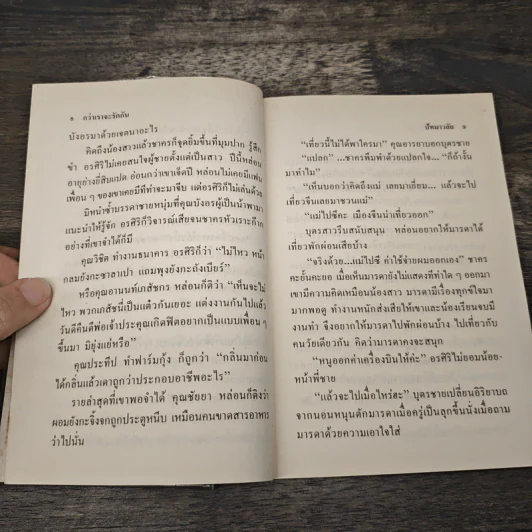 ๘ กว่าเราจะรักกัน
บังอรมาด้วยเจตนาอะไร
คิดถึงน้องสาวแล้วชาครก็จุดยิ้มขึ้นที่มุมปาก รู้สึก
ขำ อรศิริไม่เคยสนใจผู้ชายตั้งแต่เป็นสาว ปีนี้หล่อน
อายุย่างยี่สิบแปด อ่อนกว่าเขาเจ็ดปี หล่อนไม่เคยมีแฟน
เพื่อน ๆ ของเขาเคยมีที่ทำจะมาจีบ แต่อรศิริไม่เล่นด้วย
มิหนำซ้ำบรรดาชายหนุ่มที่คุณบังอรผู้เป็นน้าพามา
แนะนำให้รู้จัก อรศิริก็วิจารณ์เสียจนชาครหัวเราะก๊าก
อย่างที่เขาจำได้ก็มี
คุณวิชิต ทำงานธนาคาร อรศิริก็ว่า “ไม่ไหว หน้า
กลมยังกะซาลาเปา แถมพุงยังกะถังเบียร์”
หรือคุณอานนท์เภสัชกร หล่อนก็ติว่า “เห็นจะไม่
ไหว พวกเภสัชนี่เป็นแต๋วกันเยอะ แต่งงานกันไปแล้ว
วันดีคืนดีพ่อเจ้าประคุณเกิดฟิตอยากเป็นแบบเพื่อน ๆ
ขึ้นมา มิยุ่งแย่หรือ”
คุณประทีป ทำฟาร์มกุ้ง ก็ถูกว่า “กลิ่นมาก่อน
ได้กลิ่นแล้วเดาถูกว่าประกอบอาชีพอะไร”
รายล่าสุดที่เขาพอจำได้ คุณชัยยา หล่อนก็ติงว่า
ผอมยังกะจิ้งจกถูกประตูหนีบ เหมือนคนขาดสารอาหาร
ว่าไปนั่น
ปัทมาวลัย ๙
“เที่ยวนี้ไม่ได้พาใครมา” คุณอารยาบอกบุตรชาย
“แปลก” ...ชาครพึมพำด้วยแปลกใจ... “ก็ถ้างั้น
มาทำไม”
“เห็นบอกว่าคิดถึงแม่ เลยมาเยี่ยม... แล้วจะไป
เที่ยวจีนเลยมาชวนแม่”
“แม่ไปซีคะ เมืองจีนน่าเที่ยวออก”
บุตรสาวรีบสนับสนุน หล่อนอยากให้มารดาได้
เที่ยวพักผ่อนเสียบ้าง
“จริงด้วย...แม่ไปซี ค่าใช้จ่ายผมออกเอง” ชาคร
คะยั้นคะยอ เมื่อเห็นมารดายังไม่แสดงทีท่าใด ๆ ออกมา
เขามีความคิดเหมือนน้องสาว มารดามีเรื่องทุกข์ใจมา
มากพอดู ทำงานหนักส่งเสียให้เขาและน้องเรียนจบมี
งานทำ จึงอยากให้มารดาไปพักผ่อนบ้าง ไปเที่ยวกับ
คนวัยเดียวกัน คิดว่ามารดาคงจะสนุก
“หนูออกค่าเครื่องบินให้ค่ะ” อรศิริไม่ยอมน้อย-
หน้าพี่ชาย
“แล้วจะไปเมื่อไหร่ฮะ” บุตรชายเปลี่ยนอิริยาบถ
จากนอนหนุนตักมารดาเมื่อครู่เป็นลุกขึ้นนั่งเมื่อถาม
มารดาด้วยความเอาใจใส่